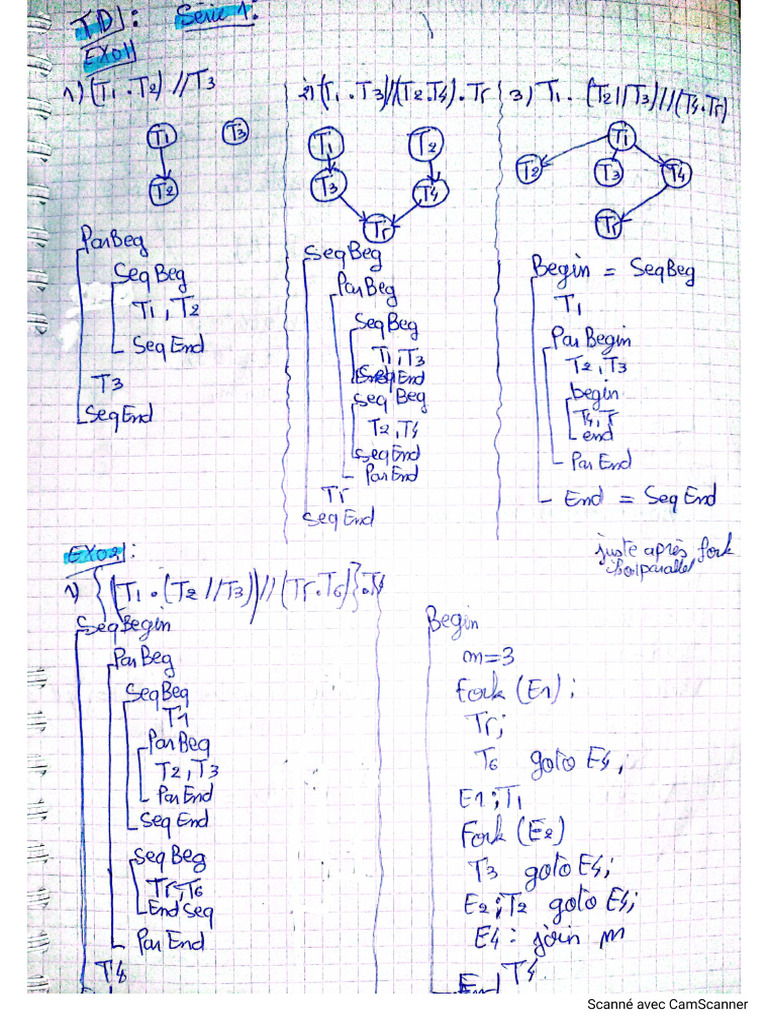 TD1: Serie 1:
EX01
1) (T1 . T2) // T3
T1 T3
T2
ParBeg
SeqBeg
T1, T2
SeqEnd
T3
SeqEnd
2) (T1 . T3)//(T2.T4) . T5
T1 T2
T3 T4
T5
SeqBeg
ParBeg
SeqBeg
T1, T3
SeqEnd
SeqBeg
T2, T4
SeqEnd
ParEnd
T5
SeqEnd
3) T1 . (T2//T3)//(T4.T5)
T1
T2 T3 T4
T5
Begin = SeqBeg
T1
ParBegin
T2, T3
begin
T4, T5
end
ParEnd
End = SeqEnd
juste après fork
parallel
EX02:
1) {(T1 . (T2 // T3)) // (T5 . T6)} . T4
SeqBegin
ParBeg
SeqBeg
T1
ParBeg
T2, T3
ParEnd
SeqEnd
SeqBeg
T5, T6
EndSeq
ParEnd
T4
Begin
m=3
Fork (E1);
T5;
T6 goto E4;
E1; T1
Fork (E2)
T3 goto E4;
E2; T2 goto E4;
E4: join m
T4
End
Scanné avec CamScanner